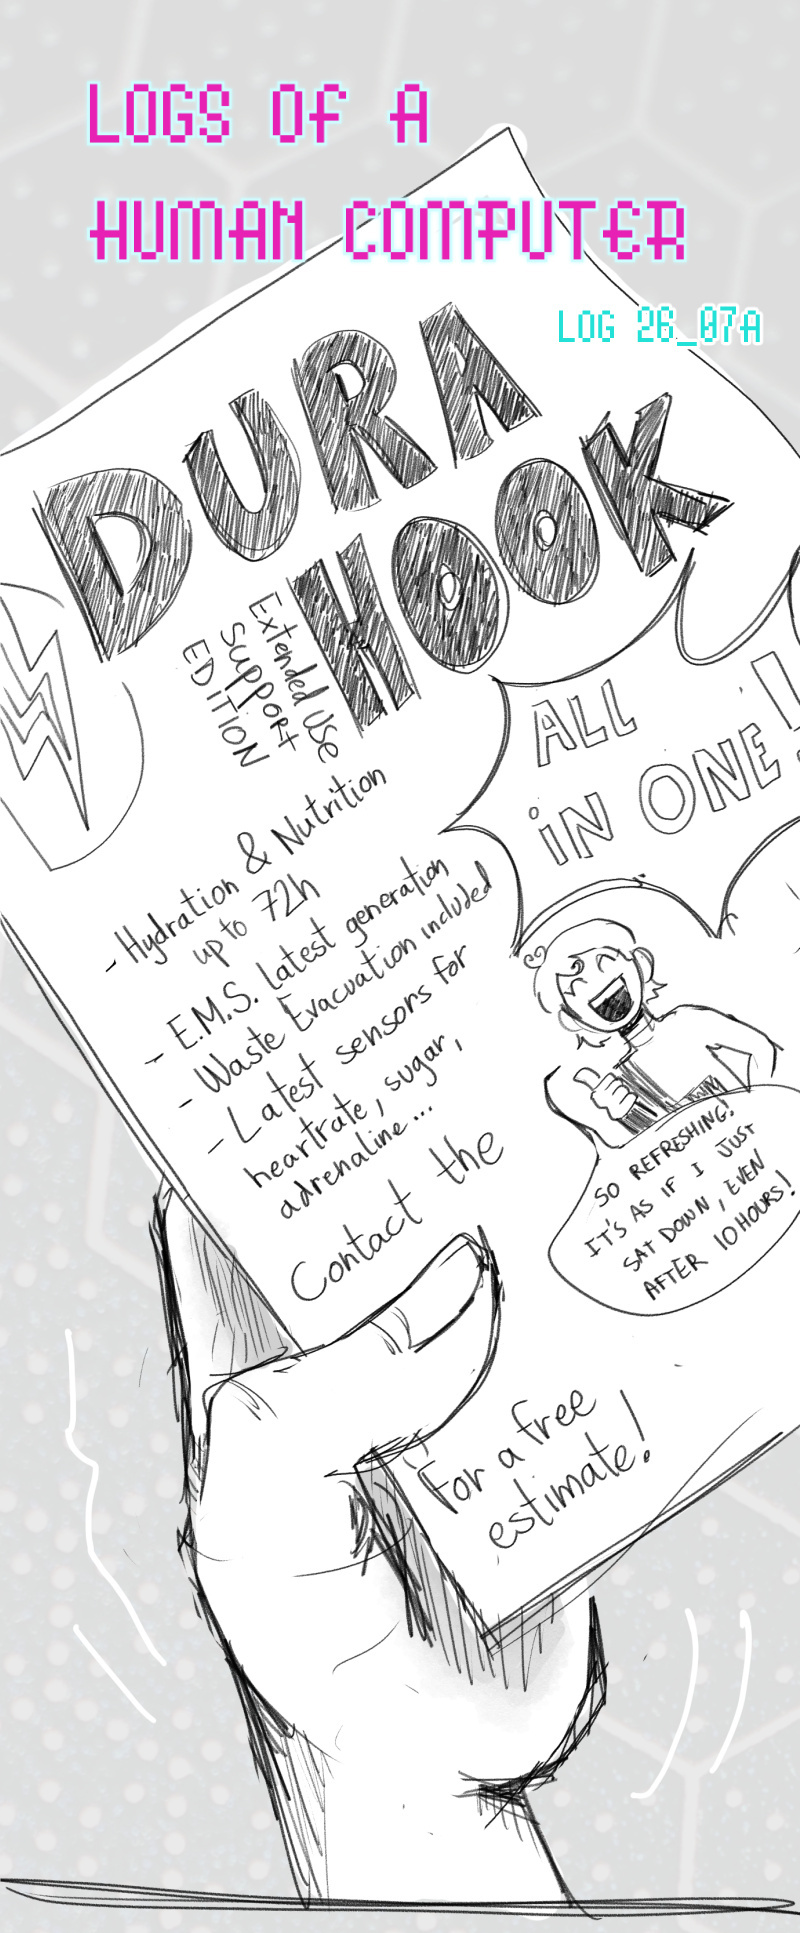 LOGS OF A
HUMAN COMPUTER
LOG 26_07A
DURA
HOOK
Extended USE
SUPPORT
EDITION
ALL
iN ONE!
- Hydration & Nutrition
up to 72h
- E.M.S. latest generation
- Waste Evacuation included
- Latest sensors for
heartrate, sugar,
adrenaline...
SO REFRESHING!
IT'S AS IF I JUST
SAT DOWN, EVEN
AFTER 10 HOURS!
Contact the
For a free
estimate!